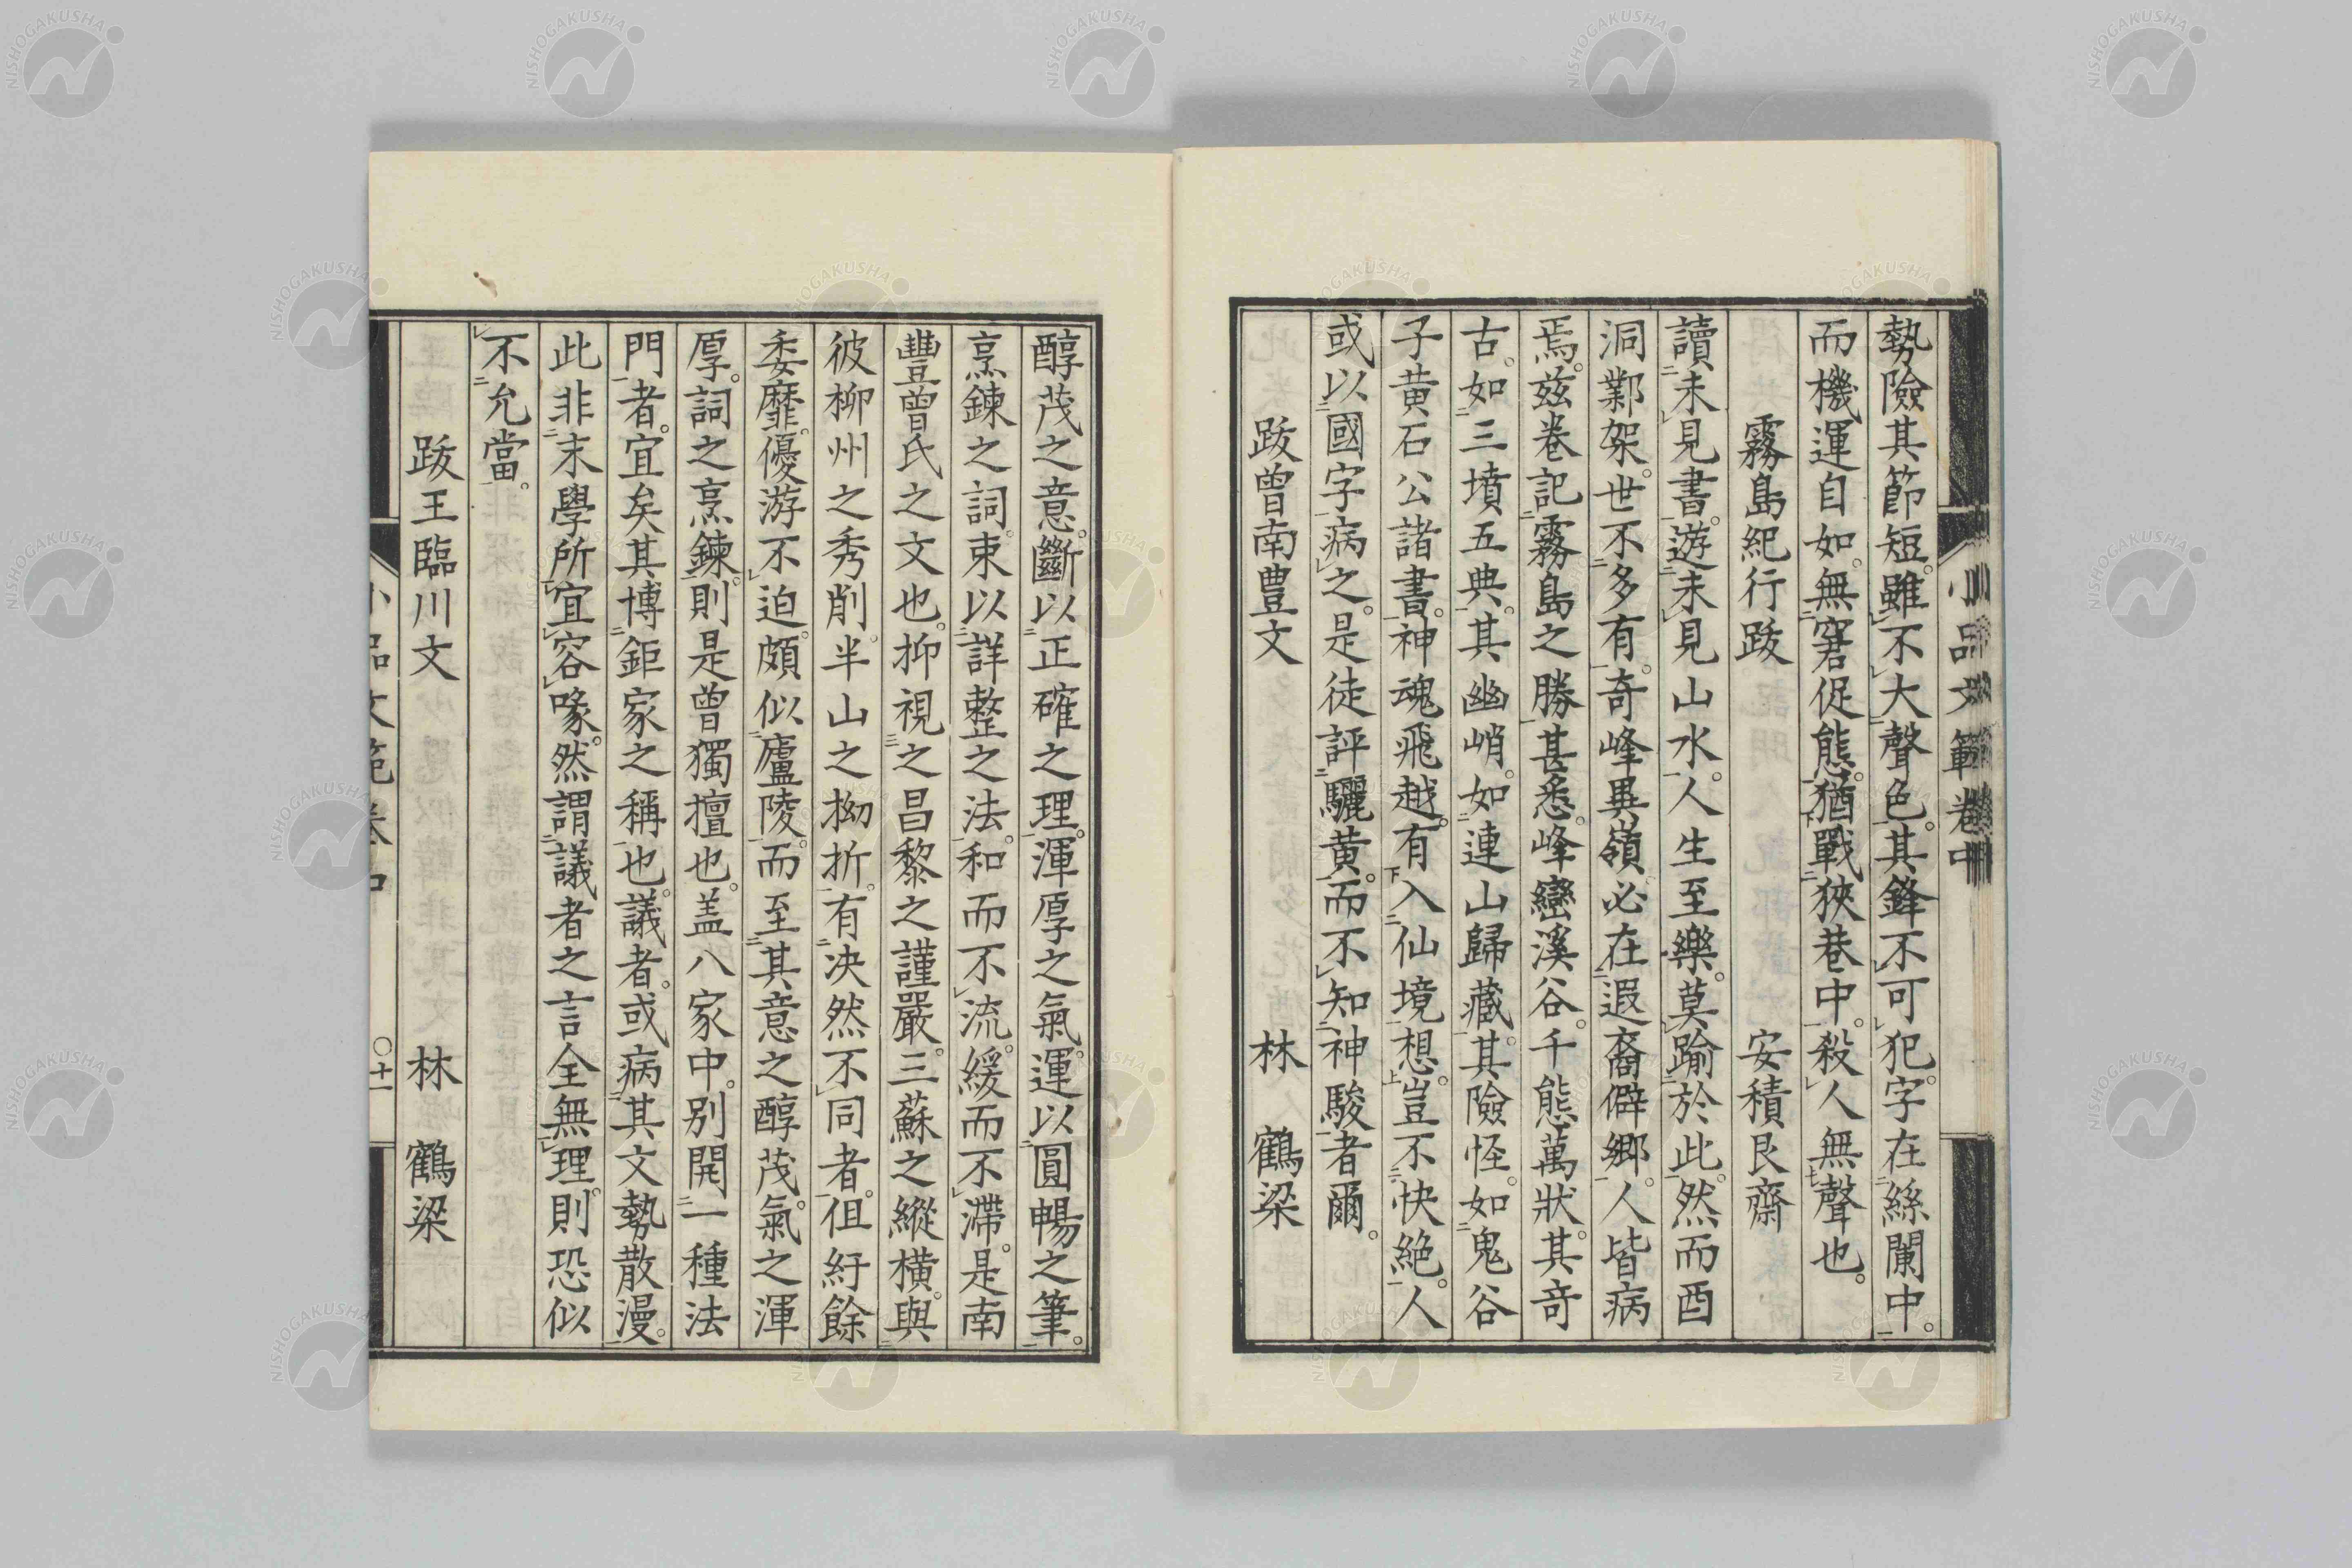 小品文範卷中
勢險其節短。雖不大聲色。其鋒不可犯。字在絲闌中。
而機運自如。無窘促態。猶戰狹巷中。殺人無聲也。
霧島紀行跋 安積艮齋
讀未見書。遊未見山水。人生至樂。莫踰於此。然而酉
洞鄴架。世不多有。奇峰異嶺。必在遐裔僻鄉。人皆病
焉。茲卷記霧島之勝甚悉。峰巒溪谷。千態萬狀。其奇
古。如三墳五典。其幽峭。如連山歸藏。其險怪。如鬼谷
子黃石公諸書。神魂飛越。有入仙境想。豈不快絶。人
或以國字病之。是徒評驪黃。而不知神駿者爾。
跋曾南豊文 林 鶴梁
醇茂之意。斷以正確之理。渾厚之氣。運以圓暢之筆。
烹鍊之詞。束以詳整之法。和而不流。緩而不滯。是南
豐曾氏之文也。抑視之昌黎之謹嚴。三蘇之縱橫。與
彼柳州之秀削。半山之拗折。有決然不同者。但紆餘
委靡。優游不迫。頗似廬陵。而至其意之醇茂。氣之渾
厚。詞之烹鍊。則是曾獨擅也。盖八家中。別開一種法
門者。宜矣其博鉅家之稱也。議者。或病其文勢散漫。
此非末學所宜容喙。然謂議者之言全無理。則恐似
不允當。
跋王臨川文 林 鶴梁
小品文範卷中 〇十一
NISHOGAKUSHA
NISHOGAKUSHA
NISHOGAKUSHA
NISHOGAKUSHA
NISHOGAKUSHA
NISHOGAKUSHA
NISHOGAKUSHA
NISHOGAKUSHA
NISHOGAKUSHA
NISHOGAKUSHA
NISHOGAKUSHA
NISHOGAKUSHA
NISHOGAKUSHA
NISHOGAKUSHA